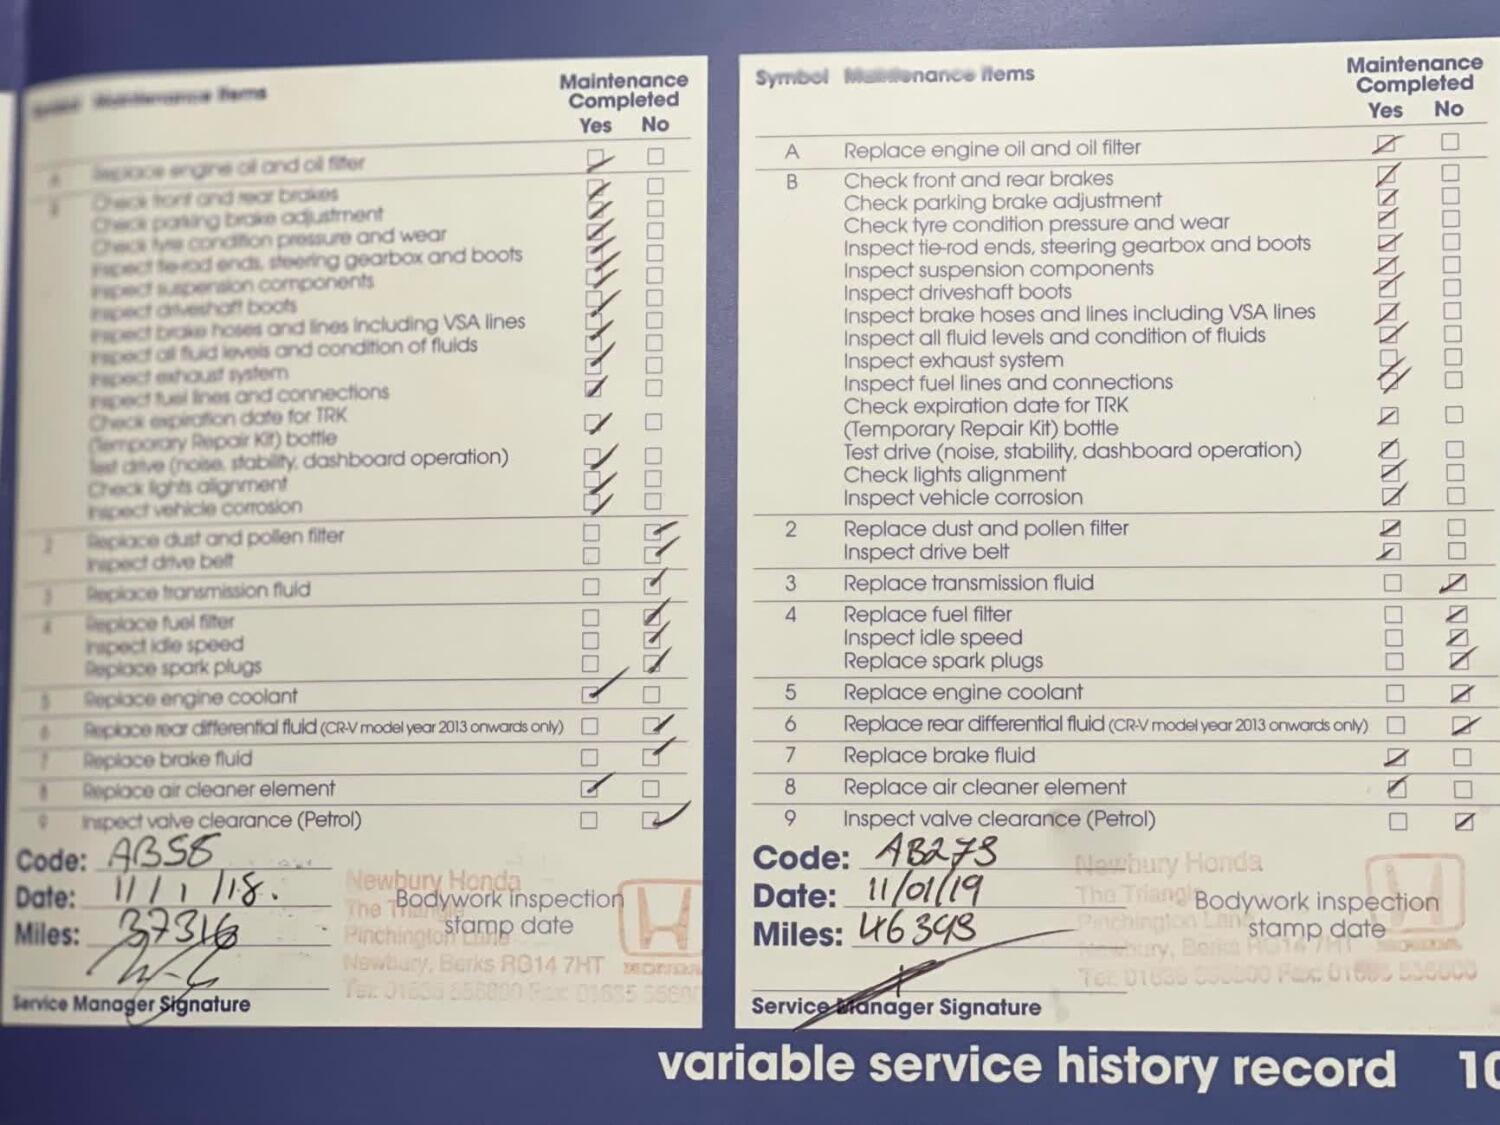 Symbol Maintenance Items
Maintenance Completed
Yes No
Replace engine oil and oil filter
Check front and rear brakes
Check parking brake adjustment
Check tyre condition pressure and wear
Inspect tie-rod ends, steering gearbox and boots
Inspect suspension components
Inspect driveshaft boots
Inspect brake hoses and lines including VSA lines
Inspect all fluid levels and condition of fluids
Inspect exhaust system
Inspect fuel lines and connections
Check expiration date for TRK
(Temporary Repair Kit) bottle
Test drive (noise, stability, dashboard operation)
Check lights alignment
Inspect vehicle corrosion
2 Replace dust and pollen filter
Inspect drive belt
3 Replace transmission fluid
4 Replace fuel filter
Inspect idle speed
Replace spark plugs
5 Replace engine coolant
6 Replace rear differential fluid (CR-V model year 2013 onwards only)
7 Replace brake fluid
8 Replace air cleaner element
9 Inspect valve clearance (Petrol)
Code: AB58
Date: 11/1/18.
Miles: 37316
Newbury Honda
The Triangle
Pinchington Lane
Newbury, Berks RG14 7HT
HONDA
Bodywork inspection
stamp date
Service Manager Signature
Symbol Maintenance Items
Maintenance Completed
Yes No
A Replace engine oil and oil filter
B Check front and rear brakes
Check parking brake adjustment
Check tyre condition pressure and wear
Inspect tie-rod ends, steering gearbox and boots
Inspect suspension components
Inspect driveshaft boots
Inspect brake hoses and lines including VSA lines
Inspect all fluid levels and condition of fluids
Inspect exhaust system
Inspect fuel lines and connections
Check expiration date for TRK
(Temporary Repair Kit) bottle
Test drive (noise, stability, dashboard operation)
Check lights alignment
Inspect vehicle corrosion
2 Replace dust and pollen filter
Inspect drive belt
3 Replace transmission fluid
4 Replace fuel filter
Inspect idle speed
Replace spark plugs
5 Replace engine coolant
6 Replace rear differential fluid (CR-V model year 2013 onwards only)
7 Replace brake fluid
8 Replace air cleaner element
9 Inspect valve clearance (Petrol)
Code: AB273
Date: 11/01/19
Miles: 46393
Newbury Honda
The Triangle
Pinchington Lane
Newbury, Berks RG14 7HT
HONDA
Bodywork inspection
stamp date
Service Manager Signature
variable service history record 10